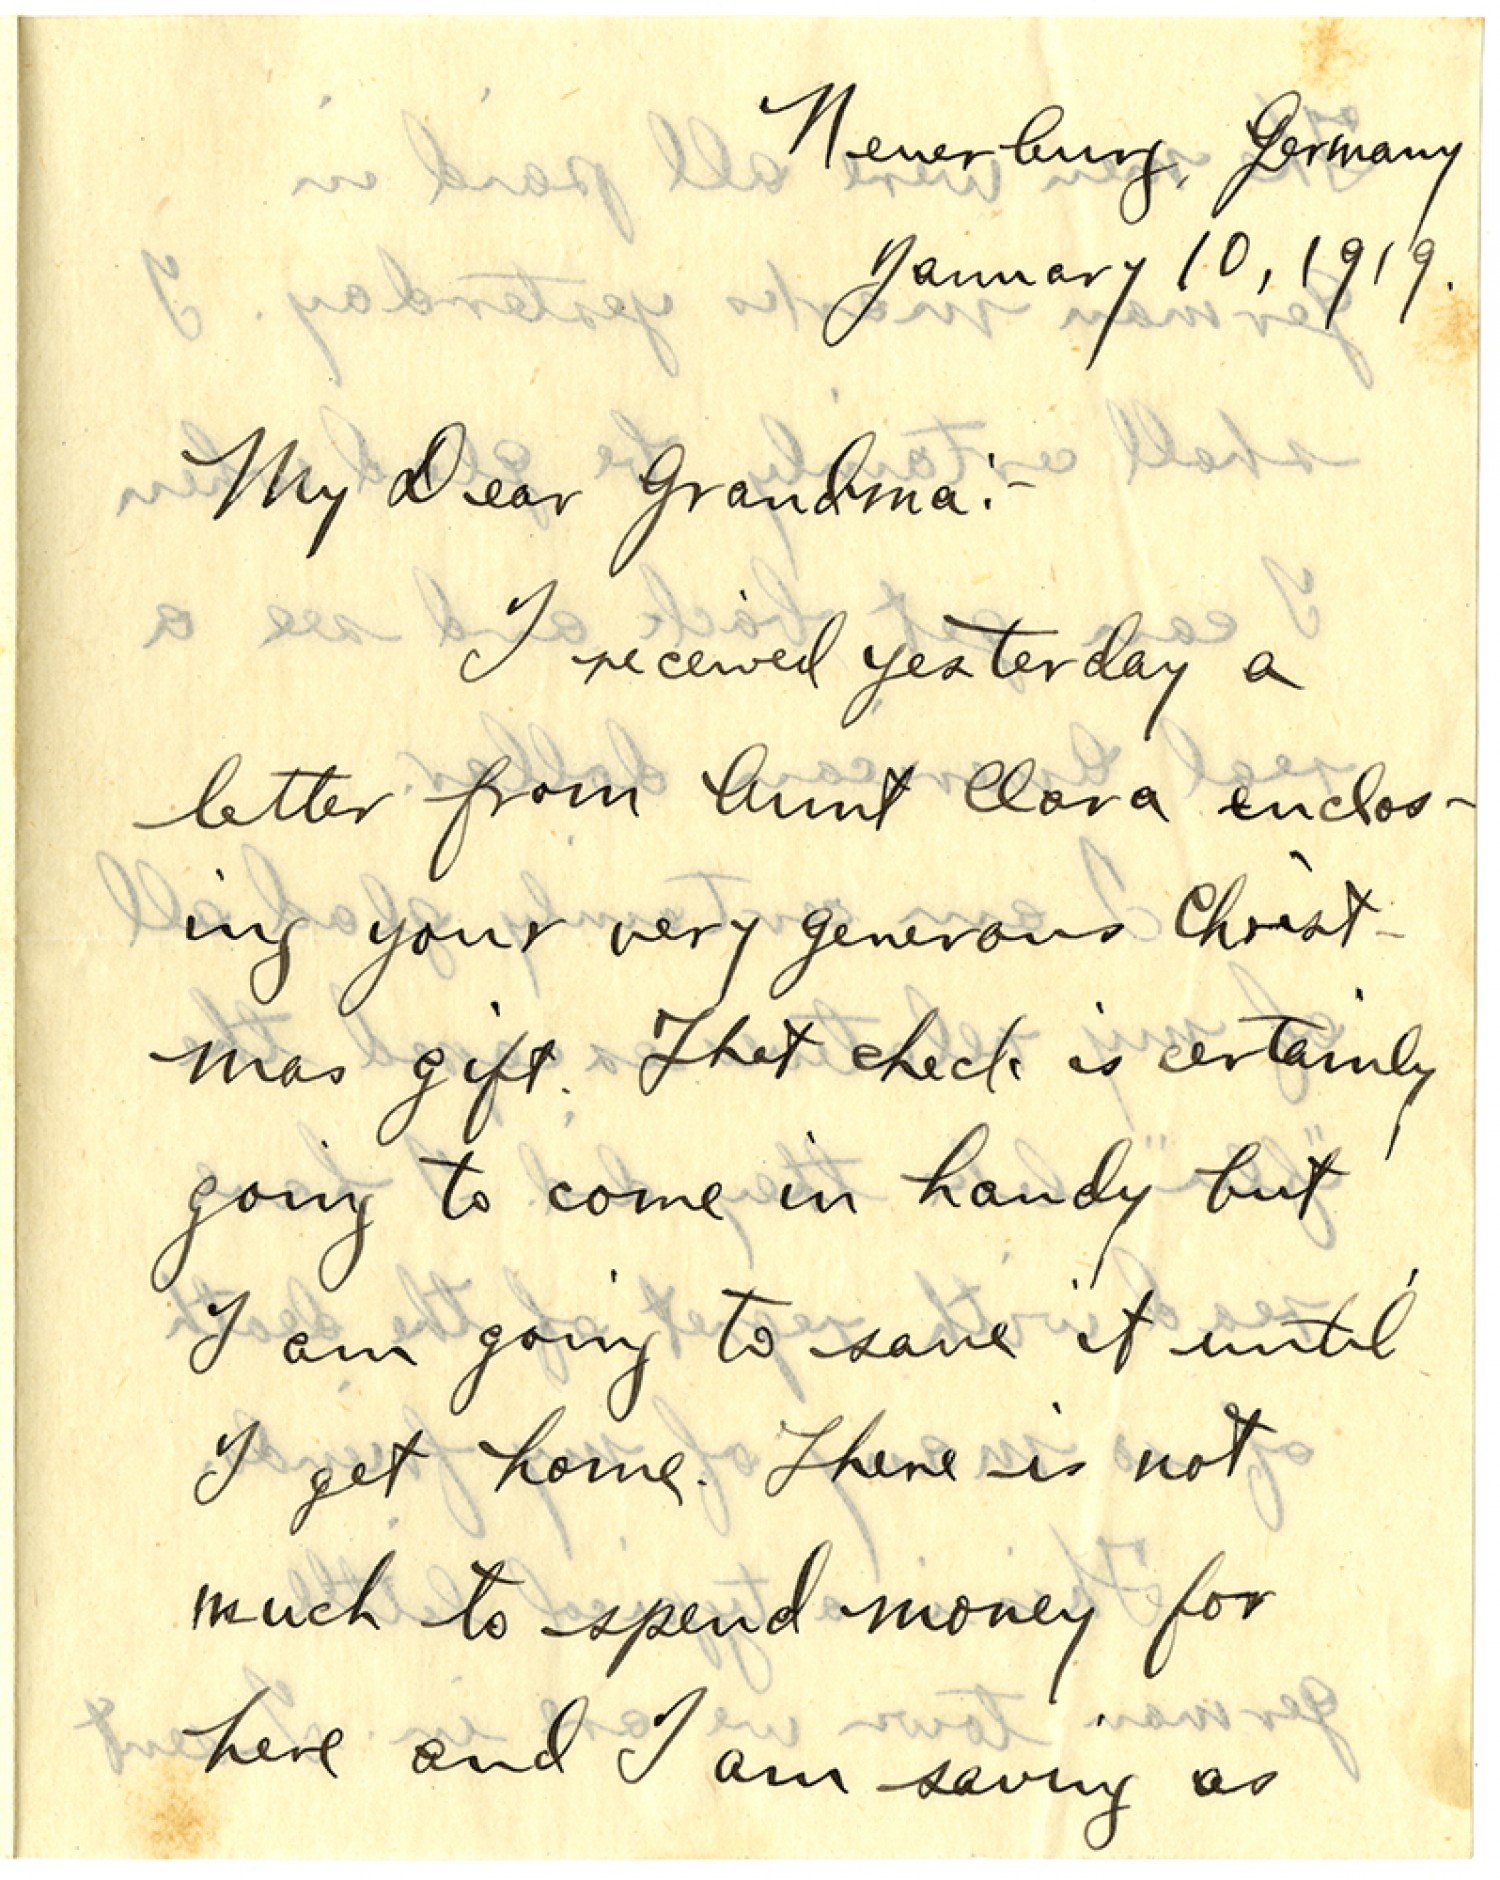 Neuerburg, Germany
January 10, 1919.
My Dear Grandma:-
I received yesterday a
letter from Aunt Clara enclos-
ing your very generous Christ-
mas gift. That check is certainly
going to come in handy but
I am going to save it until
I get home. There is not
much to spend money for
here and I am saving as